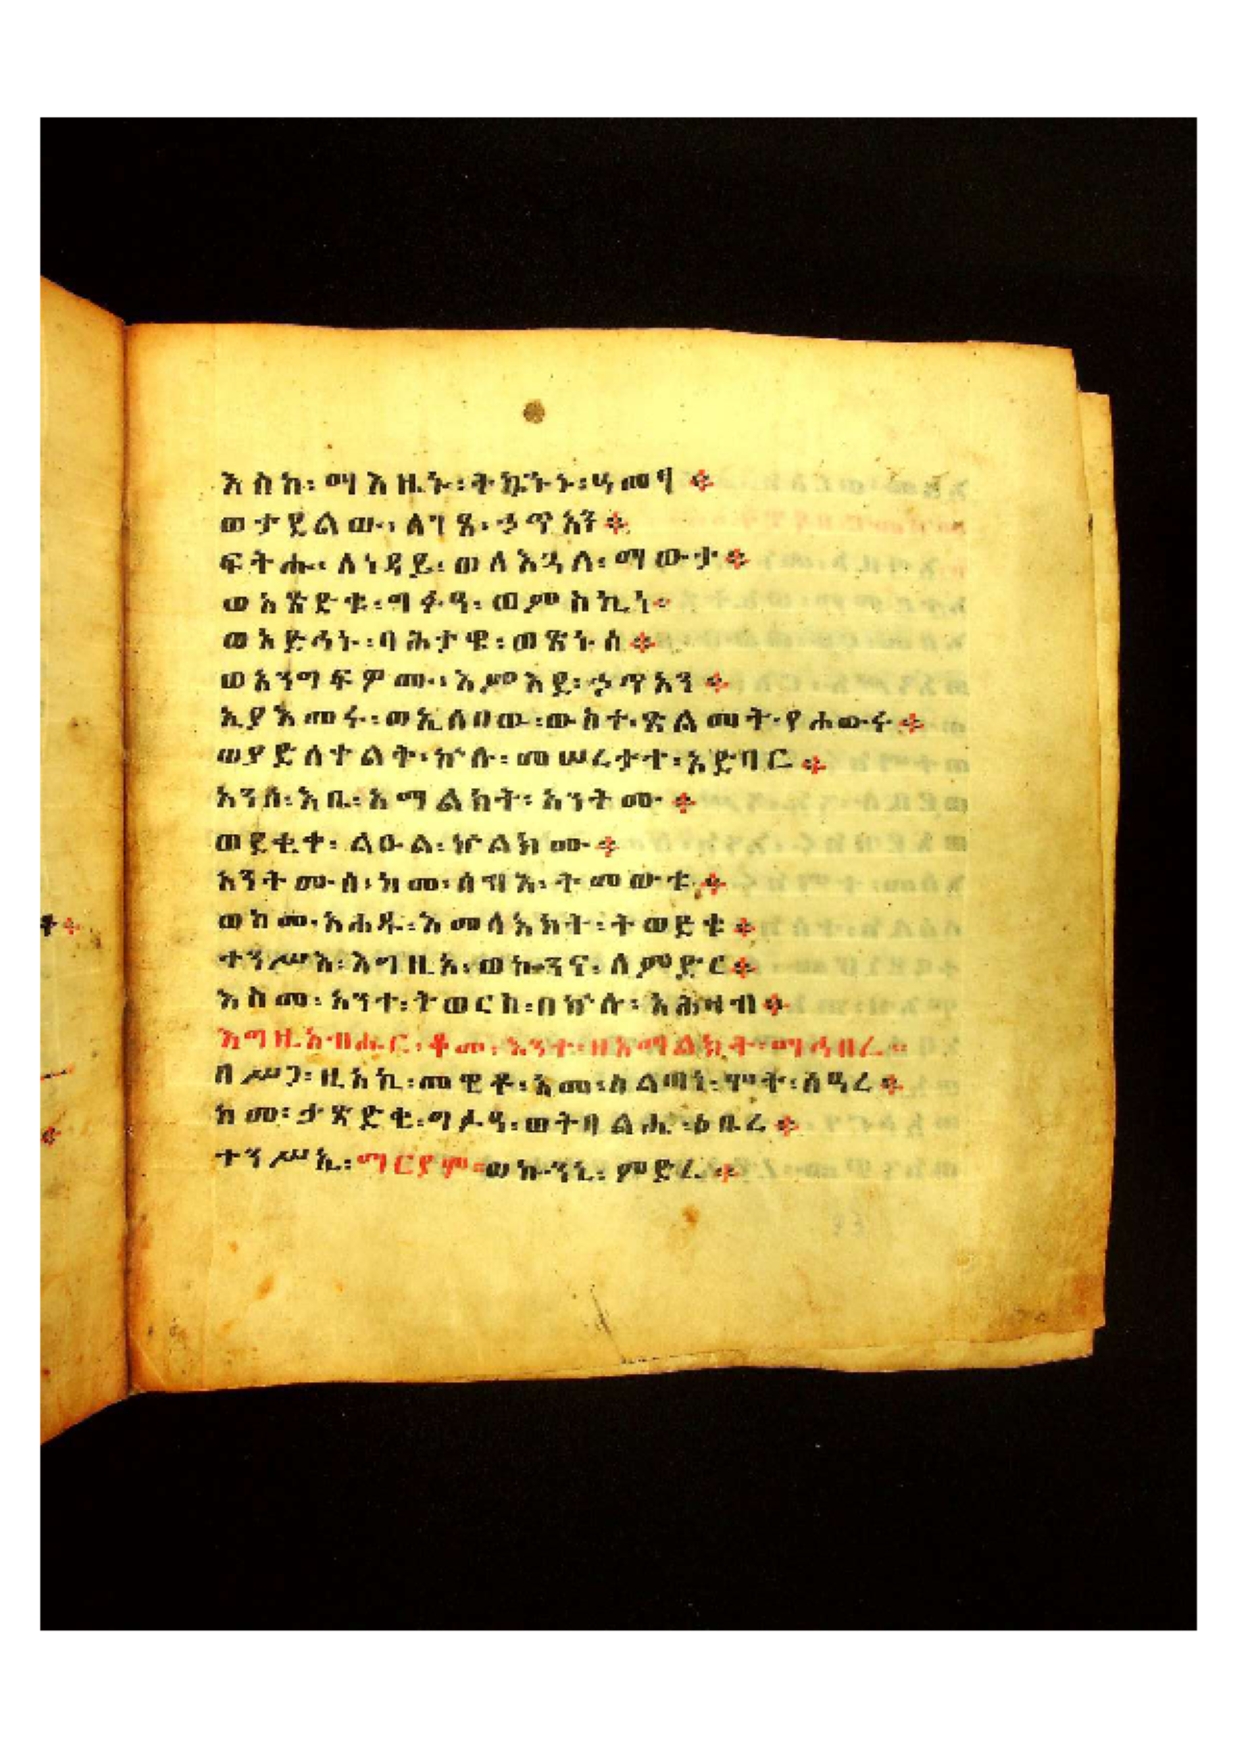 እስከ፡ ማእዜኑ፡ ትኴንኑ፡ ዓመፃ ።
ወታዴልው፡ ለገጸ፡ ኃጥአን ።
ፍትሑ፡ ለነዳይ፡ ወለእጓለ፡ ማውታ ።
ወአጽድቁ፡ ግፉዓ፡ ወምስኪነ ።
ወአድኅኑ፡ ባሕታዌ፡ ወጽኑሰ ።
ወአንግፍዎሙ፡ እምእደ፡ ኃጥአን ።
ኢያእመሩ፡ ወኢለበዉ፡ ውስተ፡ ጽልመት፡ የሐውሩ ።
ወያድለቀልቅ፡ ኵሉ፡ መሠረታተ፡ አድባር ።
አንሰ፡ እቤ፡ አማልክት፡ አንትሙ ።
ወደቂቀ፡ ልዑል፡ ኵልክሙ ።
አንትሙሰ፡ ከመ፡ ሰብእ፡ ትመውቱ ።
ወከመ፡ አሐዱ፡ እመላእክት፡ ትወድቁ ።
ተንሥእ፡ እግዚኦ፡ ወኰንና፡ ለምድር ።
እስመ፡ አንተ፡ ትወርስ፡ በኵሉ፡ አሕዛብ ።
እግዚአብሔር፡ ቆመ፡ ውስተ፡ ዘአማልክት፡ ማኅበረ ።
በሥጋ፡ ዚአኪ፡ መዊቶ፡ አመ፡ ስልጣነ፡ ሞት፡ ሰዓረ ።
ከመ፡ ታጽድቂ፡ ግፉዓ፡ ወትባልሒ፡ ዕቡረ ።
ተንሥኢ፡ ማርያም፡ ወኰንኒ፡ ምድረ ።